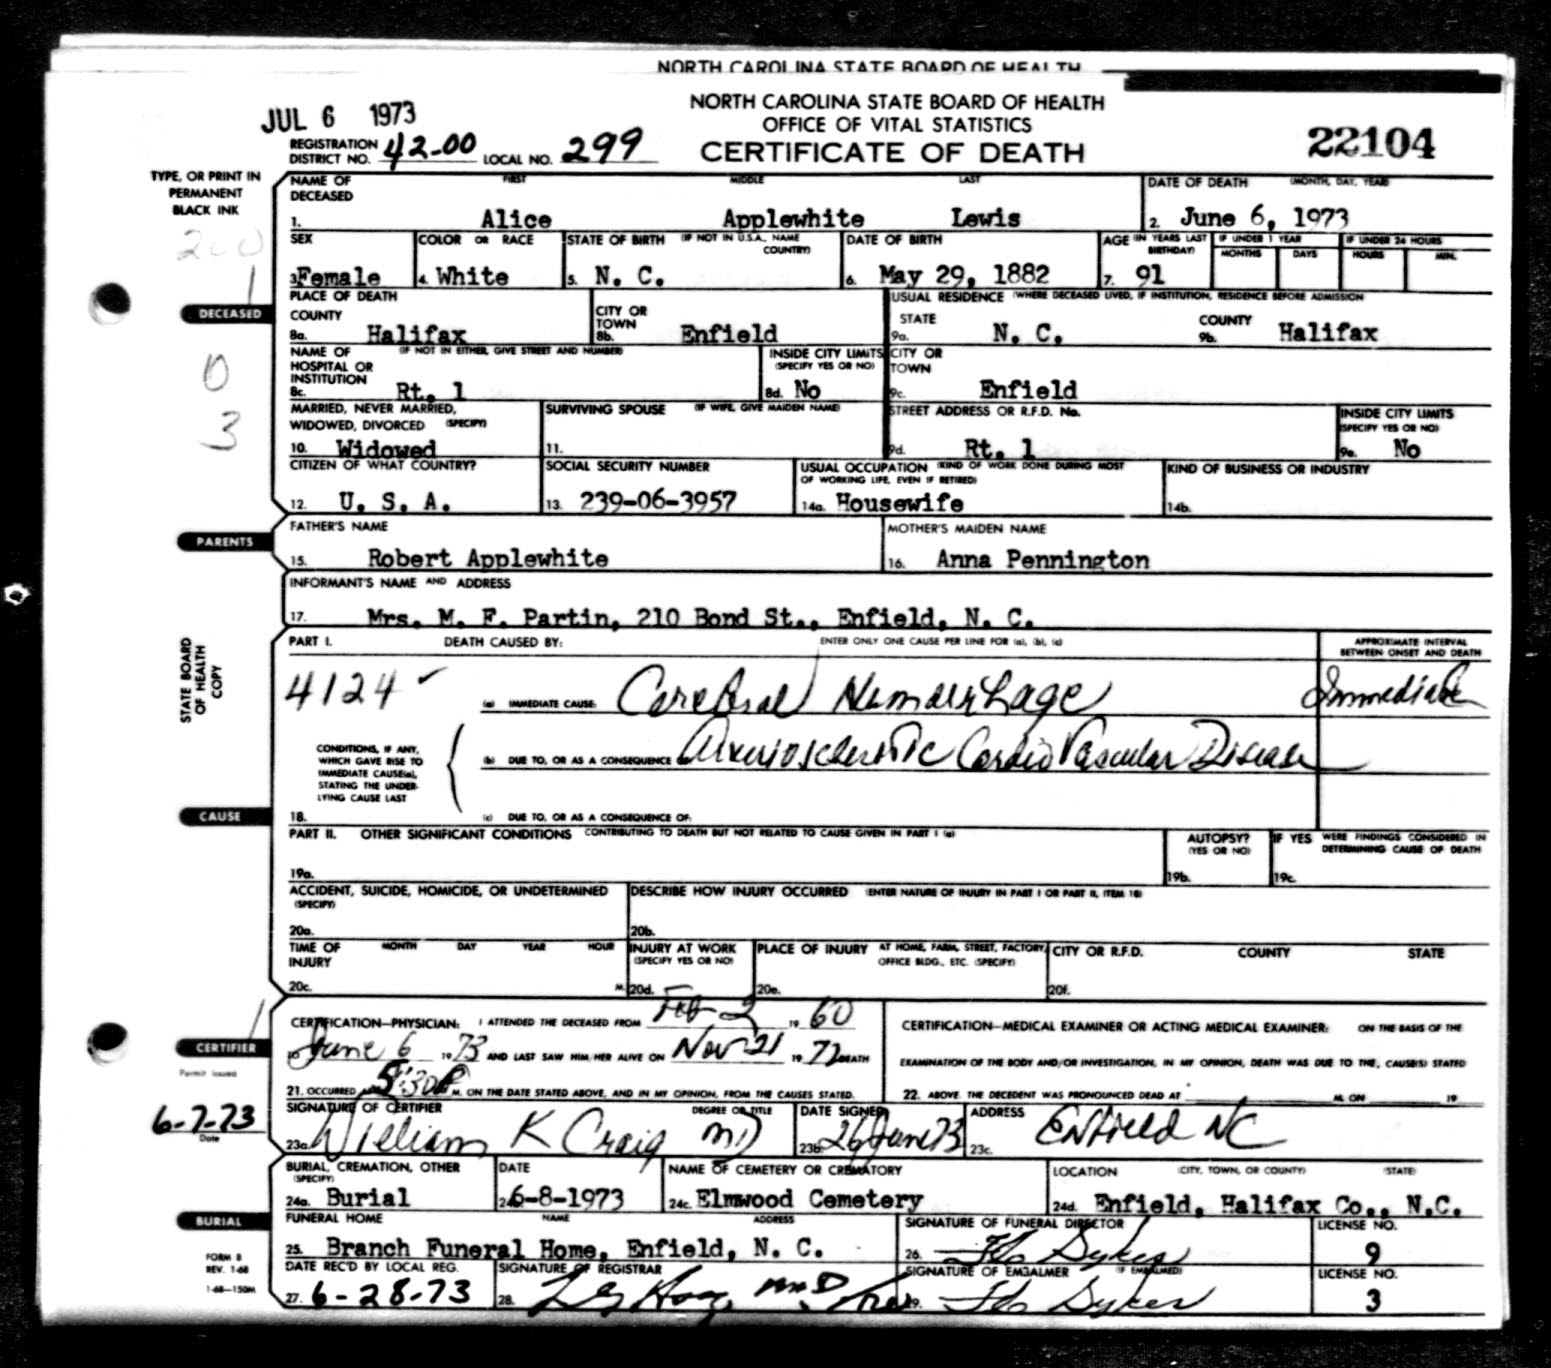 NORTH CAROLINA STATE BOARD OF HEALTH
JUL 6 1973
NORTH CAROLINA STATE BOARD OF HEALTH
OFFICE OF VITAL STATISTICS
CERTIFICATE OF DEATH
22104
REGISTRATION DISTRICT NO. 42-00 LOCAL NO. 299
TYPE, OR PRINT IN PERMANENT BLACK INK
200
1
NAME OF DECEASED FIRST MIDDLE LAST
1. Alice Applewhite Lewis
DATE OF DEATH (MONTH, DAY, YEAR)
2. June 6, 1973
SEX
3. Female
COLOR OR RACE
4. White
STATE OF BIRTH (IF NOT IN U.S.A., NAME COUNTRY)
5. N. C.
DATE OF BIRTH
6. May 29, 1882
AGE (IN YEARS LAST BIRTHDAY)
7. 91
IF UNDER 1 YEAR
MONTHS DAYS
IF UNDER 24 HOURS
HOURS MIN.
DECEASED
0
3
PLACE OF DEATH
COUNTY
8a. Halifax
CITY OR TOWN
8b. Enfield
USUAL RESIDENCE (WHERE DECEASED LIVED, IF INSTITUTION, RESIDENCE BEFORE ADMISSION
STATE
9a. N. C.
COUNTY
9b. Halifax
NAME OF HOSPITAL OR INSTITUTION (IF NOT IN EITHER, GIVE STREET AND NUMBER)
8c. Rt. 1
INSIDE CITY LIMITS (SPECIFY YES OR NO)
8d. No
CITY OR TOWN
9c. Enfield
MARRIED, NEVER MARRIED, WIDOWED, DIVORCED (SPECIFY)
10. Widowed
SURVIVING SPOUSE (IF WIFE, GIVE MAIDEN NAME)
11.
STREET ADDRESS OR R.F.D. No.
9d. Rt. 1
INSIDE CITY LIMITS (SPECIFY YES OR NO)
9e. No
CITIZEN OF WHAT COUNTRY?
12. U. S. A.
SOCIAL SECURITY NUMBER
13. 239-06-3957
USUAL OCCUPATION (KIND OF WORK DONE DURING MOST OF WORKING LIFE, EVEN IF RETIRED)
14a. Housewife
KIND OF BUSINESS OR INDUSTRY
14b.
PARENTS
FATHER'S NAME
15. Robert Applewhite
MOTHER'S MAIDEN NAME
16. Anna Pennington
INFORMANT'S NAME AND ADDRESS
17. Mrs. M. F. Partin, 210 Bond St., Enfield, N. C.
STATE BOARD OF HEALTH COPY
PART I. DEATH CAUSED BY: ENTER ONLY ONE CAUSE PER LINE FOR (a), (b), (c)
APPROXIMATE INTERVAL BETWEEN ONSET AND DEATH
4124
(a) IMMEDIATE CAUSE: Cerebral Hemorrhage Immediate
CONDITIONS, IF ANY, WHICH GAVE RISE TO IMMEDIATE CAUSE(a), STATING THE UNDERLYING CAUSE LAST
(b) DUE TO, OR AS A CONSEQUENCE OF: Arteriosclerotic Cardio Vascular Disease
CAUSE
18. (c) DUE TO, OR AS A CONSEQUENCE OF:
PART II. OTHER SIGNIFICANT CONDITIONS CONTRIBUTING TO DEATH BUT NOT RELATED TO CAUSE GIVEN IN PART I (a)
19a.
AUTOPSY? (YES OR NO)
19b.
IF YES WERE FINDINGS CONSIDERED IN DETERMINING CAUSE OF DEATH
19c.
ACCIDENT, SUICIDE, HOMICIDE, OR UNDETERMINED (SPECIFY)
20a.
DESCRIBE HOW INJURY OCCURRED (ENTER NATURE OF INJURY IN PART I OR PART II, ITEM 18)
20b.
TIME OF INJURY MONTH DAY YEAR HOUR
20c. M.
INJURY AT WORK (SPECIFY YES OR NO)
20d.
PLACE OF INJURY AT HOME, FARM, STREET, FACTORY, OFFICE BLDG., ETC. (SPECIFY)
20e.
CITY OR R.F.D. COUNTY STATE
20f.
1
CERTIFIER
Permit issued
6-7-73
Date
CERTIFICATION—PHYSICIAN: I ATTENDED THE DECEASED FROM Feb 2 1960
TO June 6 1973 AND LAST SAW HIM/HER ALIVE ON Nov 21 1972 DEATH
21. OCCURRED AT 5:30P M. ON THE DATE STATED ABOVE, AND IN MY OPINION, FROM THE CAUSES STATED.
CERTIFICATION—MEDICAL EXAMINER OR ACTING MEDICAL EXAMINER: ON THE BASIS OF THE
EXAMINATION OF THE BODY AND/OR INVESTIGATION, IN MY OPINION, DEATH WAS DUE TO THE, CAUSE(S) STATED
22. ABOVE. THE DECEDENT WAS PRONOUNCED DEAD AT M. ON 19
SIGNATURE OF CERTIFIER DEGREE OR TITLE
23a. William K Craig MD
DATE SIGNED
23b. 26 June 73
ADDRESS
23c. Enfield NC
BURIAL, CREMATION, OTHER (SPECIFY)
24a. Burial
DATE
24b. 6-8-1973
NAME OF CEMETERY OR CREMATORY
24c. Elmwood Cemetery
LOCATION (CITY, TOWN, OR COUNTY) (STATE)
24d. Enfield, Halifax Co., N.C.
BURIAL
FUNERAL HOME NAME ADDRESS
25. Branch Funeral Home, Enfield, N. C.
SIGNATURE OF FUNERAL DIRECTOR
26. Sykes
LICENSE NO.
9
FORM 8
REV. 1-68
1-68—150M
DATE REC'D BY LOCAL REG.
27. 6-28-73
SIGNATURE OF REGISTRAR
28.
SIGNATURE OF EMBALMER (IF EMBALMED)
29. Sykes
LICENSE NO.
3